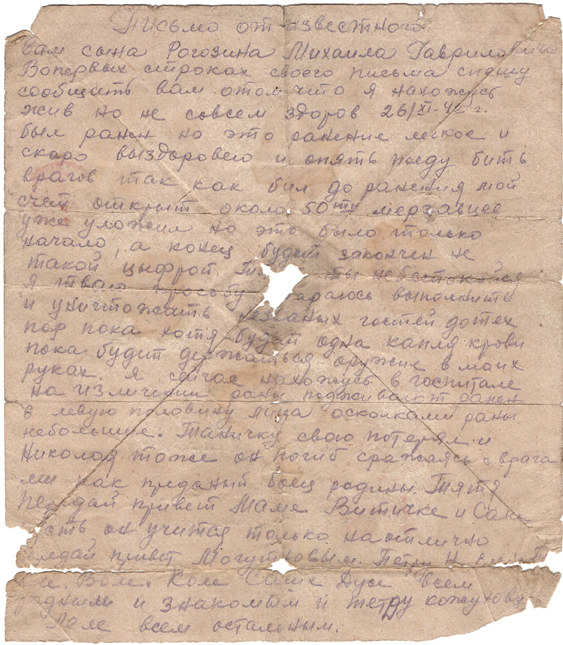 Письмо от известного
вам сына Рогозина Михаила Гавриловича
Вопервых строках своего письма спешу
сообщить вам отом что я нахожусь
жив но не совсем здоров 26/XI-42 г.
был ранен но это ранение легкое и
скоро выздоровею и опять поеду бить
врагов так как бил до ранения мой
счет открыт около 50ти мерзавцев
уже уложил но это было только
начало, а конец будет закончен не
такой цыфрой. ты небеспокойся
я твою просьбу выполнить
и уничтожать незваных гостей дотех
пор пока хотя будет одна капля крови
пока будет держаться оружие в моих
руках. я сейчас нахожусь в госпитале
на излечении раны подживают ранен
в левую половину лица осколками раны
небольшие. Таничку свого потерял и
Николая тоже он погиб сражаясь с врага
ми как преданый боец родины. Тятя
передай привет Маме Витичке и Сане
он учится только наотлично
привет Могутновым. Петру
Воле. Коле Саше Дусе всем
родным и знакомым и Петру Кожухову
всем остальным.